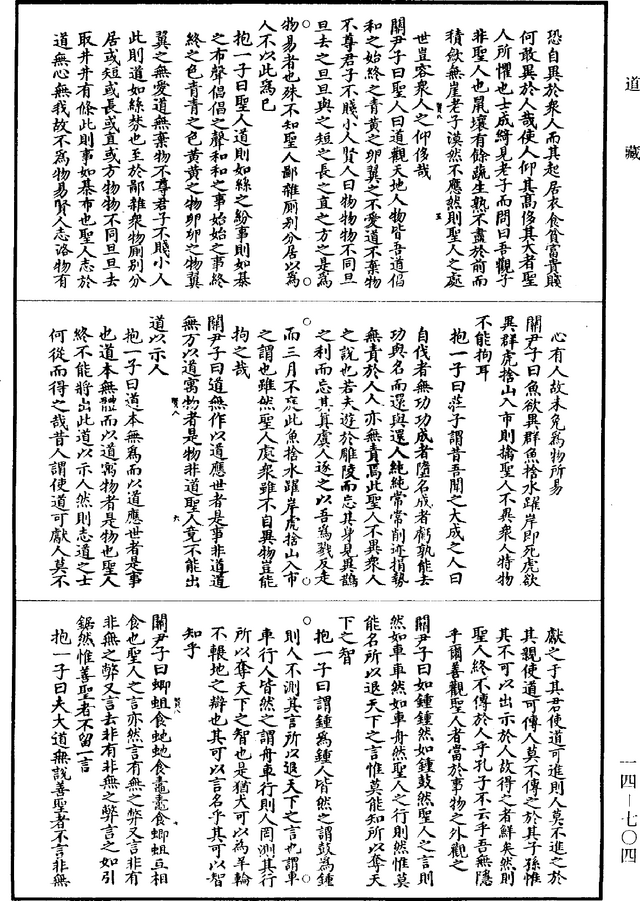 道藏
恐自異於衆人而其起居衣食貧富貴賤
何敢異於人哉使人仰其高侈其大者聖
人所懼也士成綺見老子而問曰吾觀子
非聖人也鼠壤有餘蔬生熟不盡於前而
積歛無崖老子漠然不應然則聖人之處
世豈容衆人之仰侈哉
關尹子曰聖人曰道觀天地人物皆吾道倡
和之始終之青黃之卵翼之不愛道不棄物
不尊君子不賤小人賢人曰物物物不同旦
旦去之旦旦與之短之長之直之方之是爲
物易者也殊不知聖人鄙雜厠別分居以爲
人不以此爲已
抱一子曰聖人道則如絲之紛事則如棊
之布聲倡倡之聲和和之事始始之事終
終之色青青之色黃黃之物卵卵之物翼
翼之無愛道無棄物不尊君子不賤小人
此則道如絲棼也至於鄙雜衆物厠別分
居或短或長或直或方物物不同旦旦去
取井井有條此則事如棊布也聖人志於
道無心無我故不爲物易賢人志洛物有
心有人故未免爲物所易
關尹子曰魚欲異群魚捨水躍岸即死虎欲
異群虎捨山入市則擒聖人不異衆人特物
不能拘耳
抱一子曰莊子謂昔吾聞之大成之人曰
自伐者無功功成者墮名成者虧孰能去
功與名而還與還人純純常常削迹捐勢
無責於人人亦無責焉此聖人不異衆人
之說也若夫遊於雕陵而忘其身見異鵲
之利而忘其真虞人逐之以吾爲戮反走
而三月不庭此魚捨水躍岸虎捨山入市
之謂也雖然聖人處衆雖不自異物豈能
拘之哉
關尹子曰道無作以道應世者是事非道道
無方以道寓物者是物非道聖人竟不能出
道以示人
抱一子曰道本無爲而以道應世者是事
也道本無體而以道寓物者是物也聖人
終不能將出此道以示人然則志道之士
何從而得之哉昔人謂使道可獻人莫不
獻之于其君使道可進則人莫不進之於
其親使道可傳人莫不傳之於其子孫惟
其不可以出示於人故得之者鮮矣然則
聖人終不傳於人乎孔子不云乎吾無隱
乎爾善觀聖人者當於事物之外觀之
關尹子曰如鍾鍾然如鍾鼓然聖人之言則
然如車車然如車舟然聖人之行則然惟莫
能名所以退天下之言惟莫能知所以奪天
下之智
抱一子曰謂鍾爲鍾人皆然之謂鼓爲鍾
則人不測其言所以退天下之言也謂車
車行人皆然之謂舟車行則人罔測其行
所以奪天下之智也是猶犬可以爲羊輪
不輾地之辯也其可以言名乎其可以智
知乎
關尹子曰蝍蛆食虵虵食鼃鼃食蝍蛆互相
食也聖人之言亦然言有無之弊又言非有
非無之弊又言去非有非無之弊言之如引
鋸然惟善聖者不留一言
抱一子曰夫大道無說善聖者不言非無
一四—七〇四